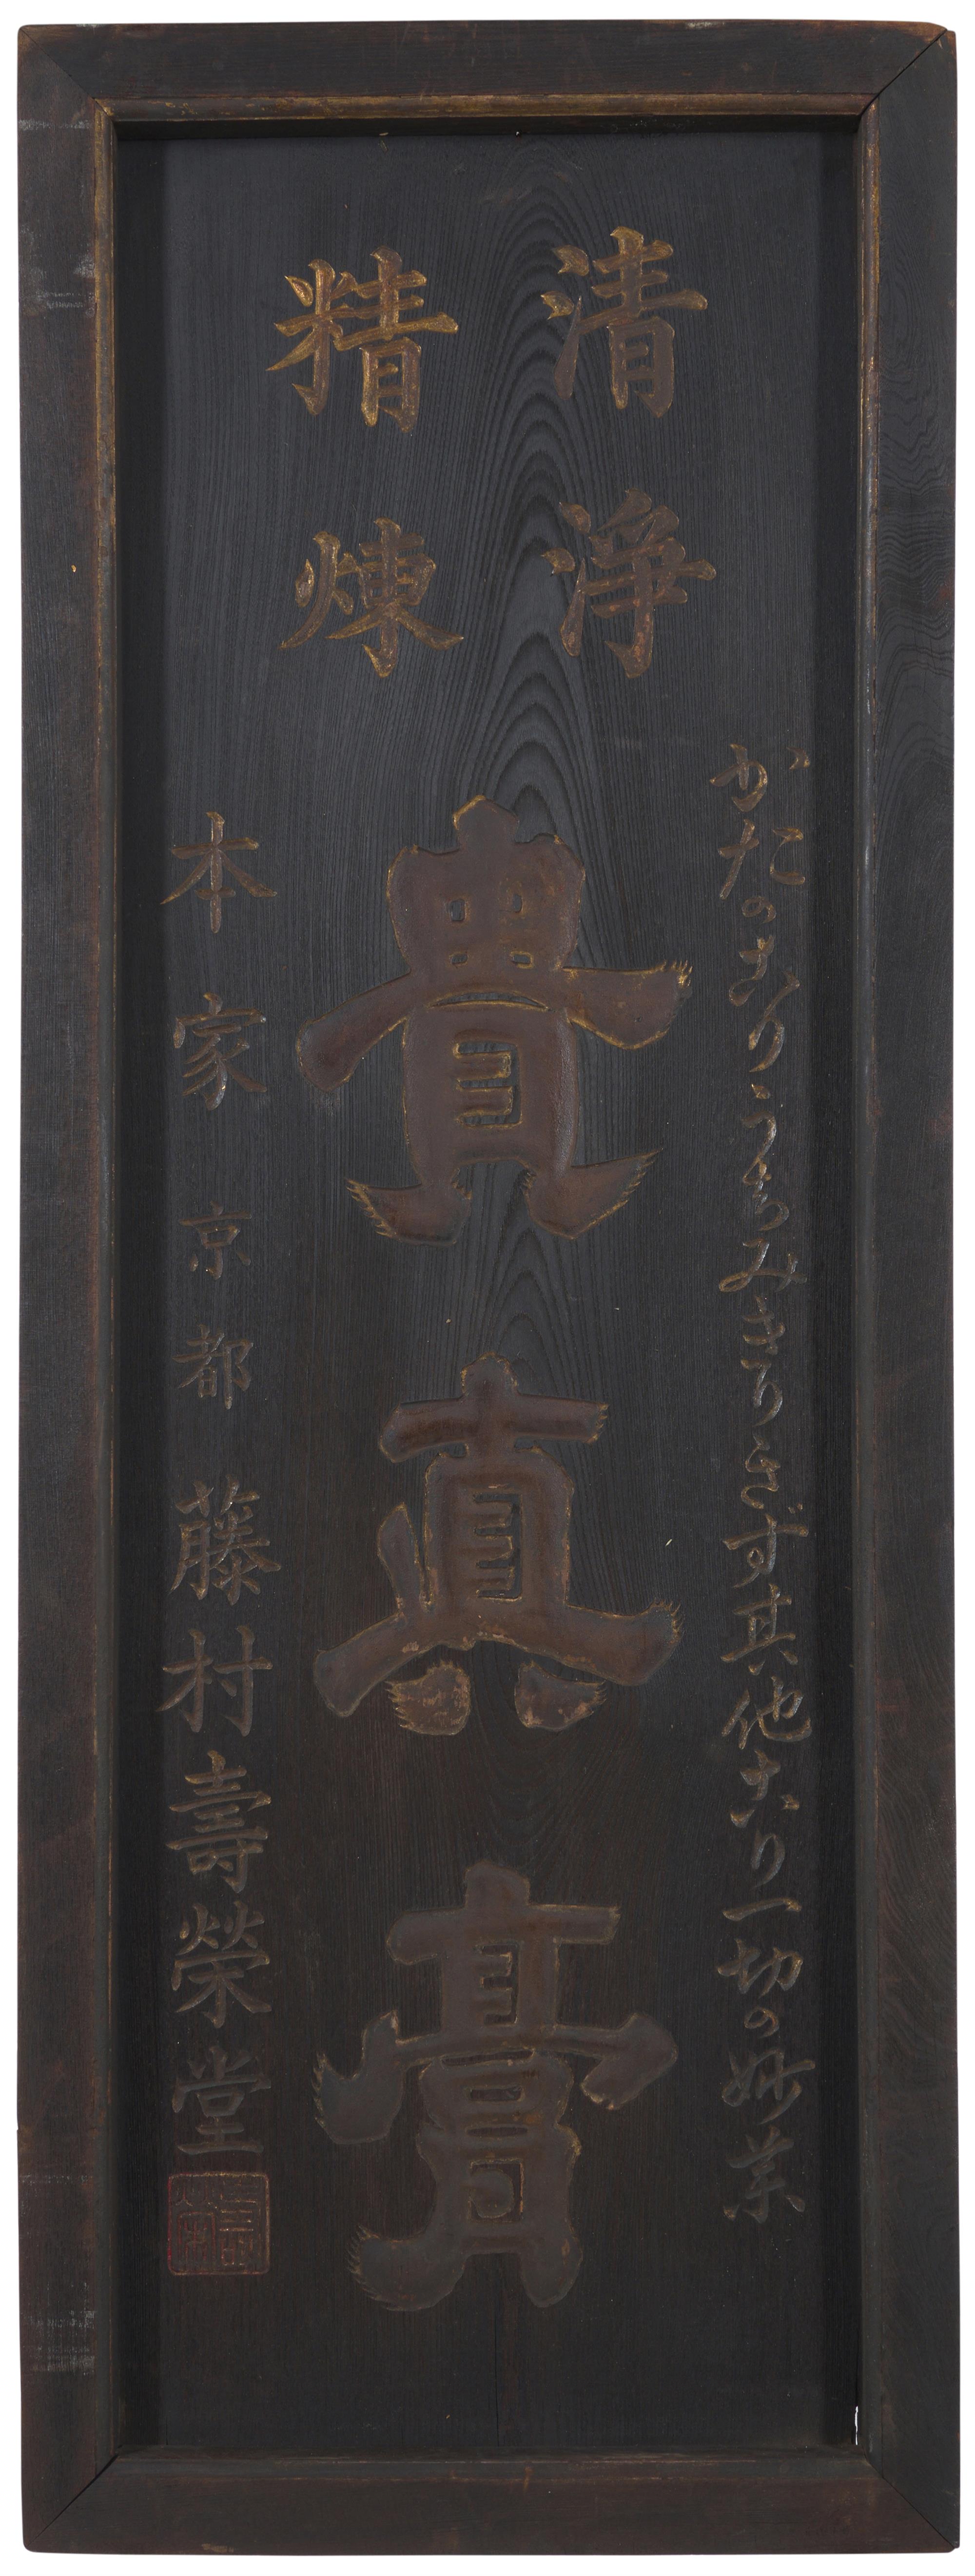 清淨
精煉
かたのこりうちみきりきず其他こり一切の妙薬
貴真膏
本家 京都 藤村壽榮堂